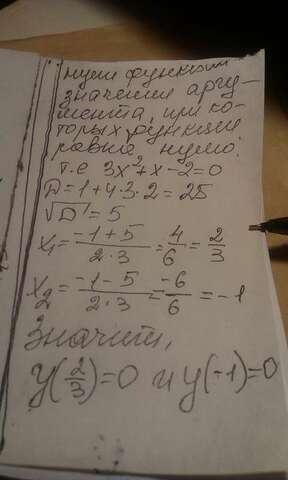 нули функции
значения аргу-
мента, при ко-
торых функция
равна нулю.
т.е 3x²+x-2=0
D=1+4·3·2=25
√D=5
x₁=\frac{-1+5}{2·3}=\frac{4}{6}=\frac{2}{3}
x₂=\frac{-1-5}{2·3}=\frac{-6}{6}=-1
Значит,
y(\frac{2}{3})=0 и y(-1)=0